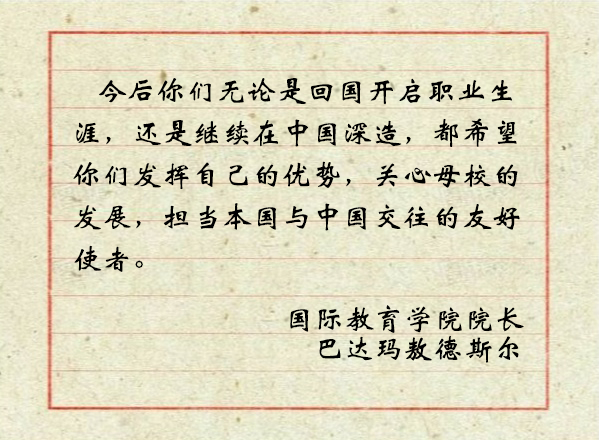 今后你们无论是回国开启职业生
涯，还是继续在中国深造，都希望
你们发挥自己的优势，关心母校的
发展，担当本国与中国交往的友好
使者。
国际教育学院院长
巴达玛敖德斯尔